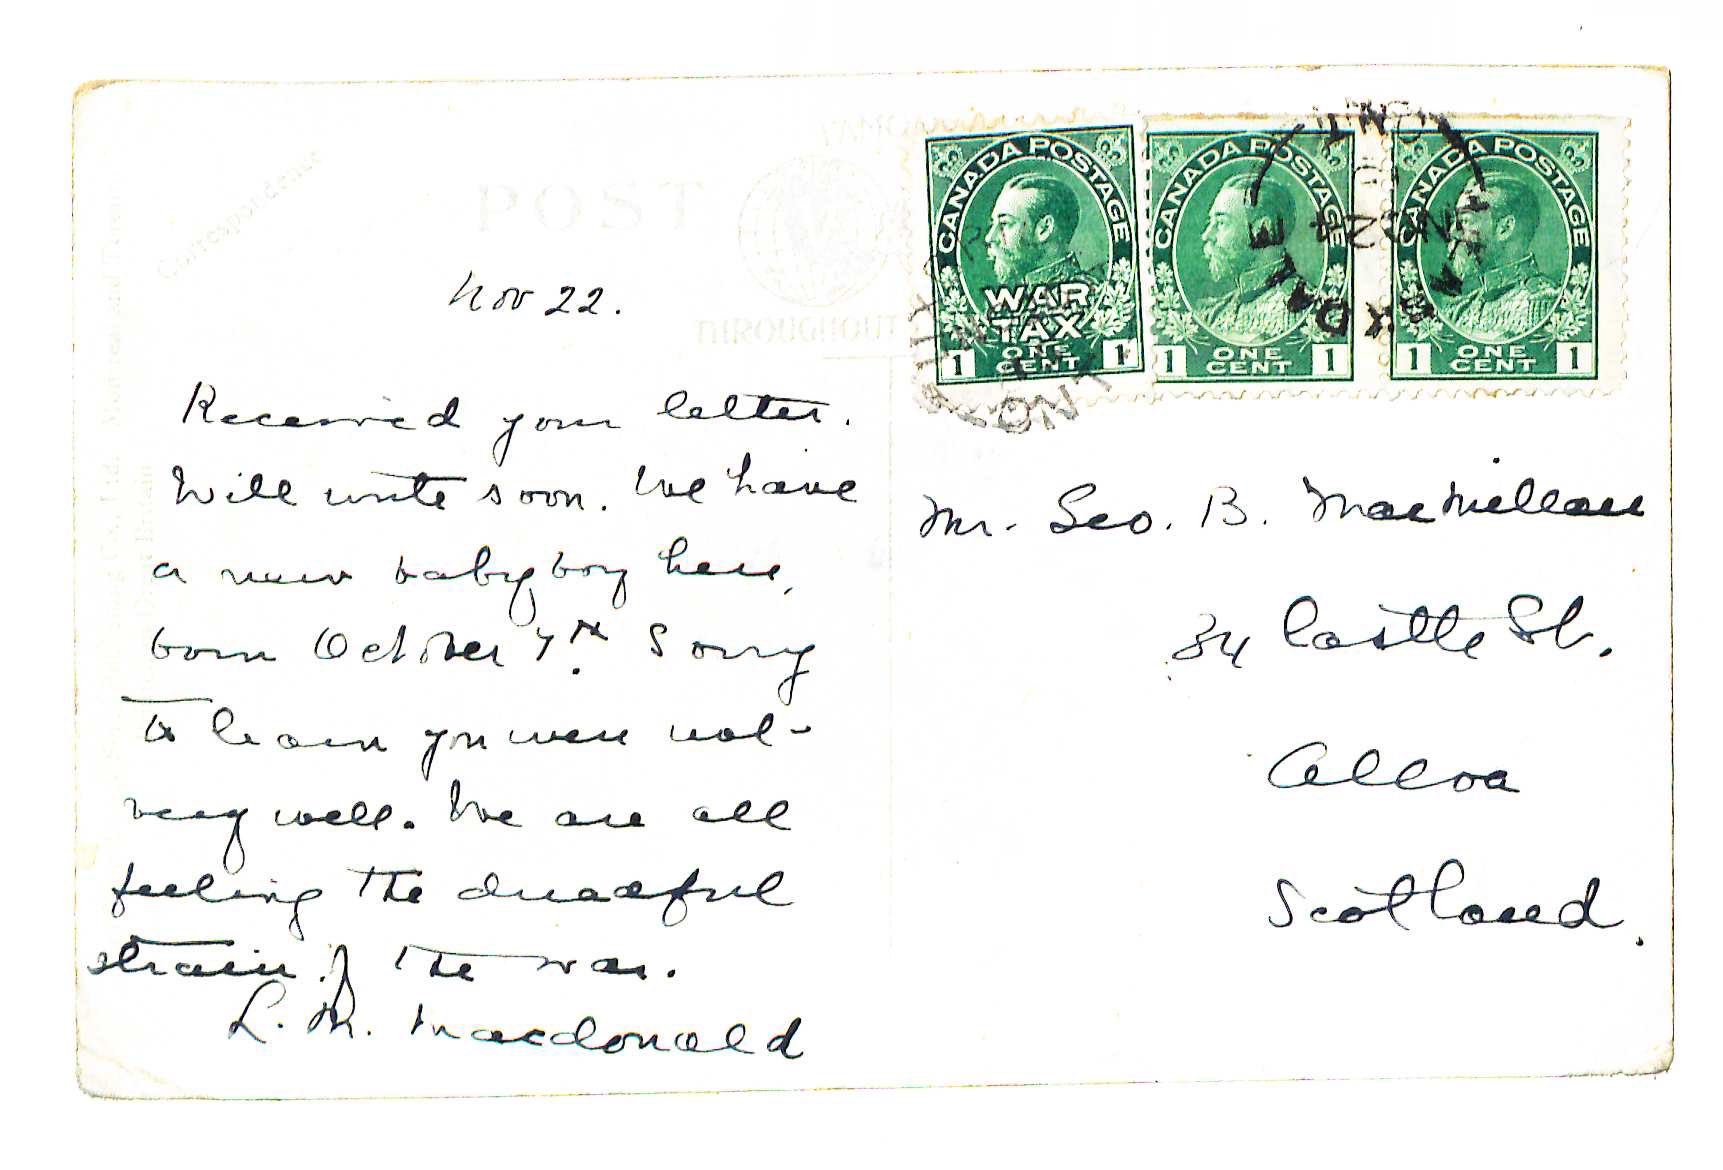 Correspondence
POST
THROUGHOUT
Nov 22.
Received your letter.
Will write soon. We have
a new baby boy here,
born October 7th. Sorry
to learn you were not
very well. We are all
feeling the dreadful
strain of the war.
L. M. Macdonald
CANADA POSTAGE
WAR
TAX
1 ONE CENT 1
CANADA POSTAGE
1 ONE CENT 1
CANADA POSTAGE
1 ONE CENT 1
ONT
NO 24
Mr. Geo. B. MacMillan
34 Castle St.
Alloa
Scotland.